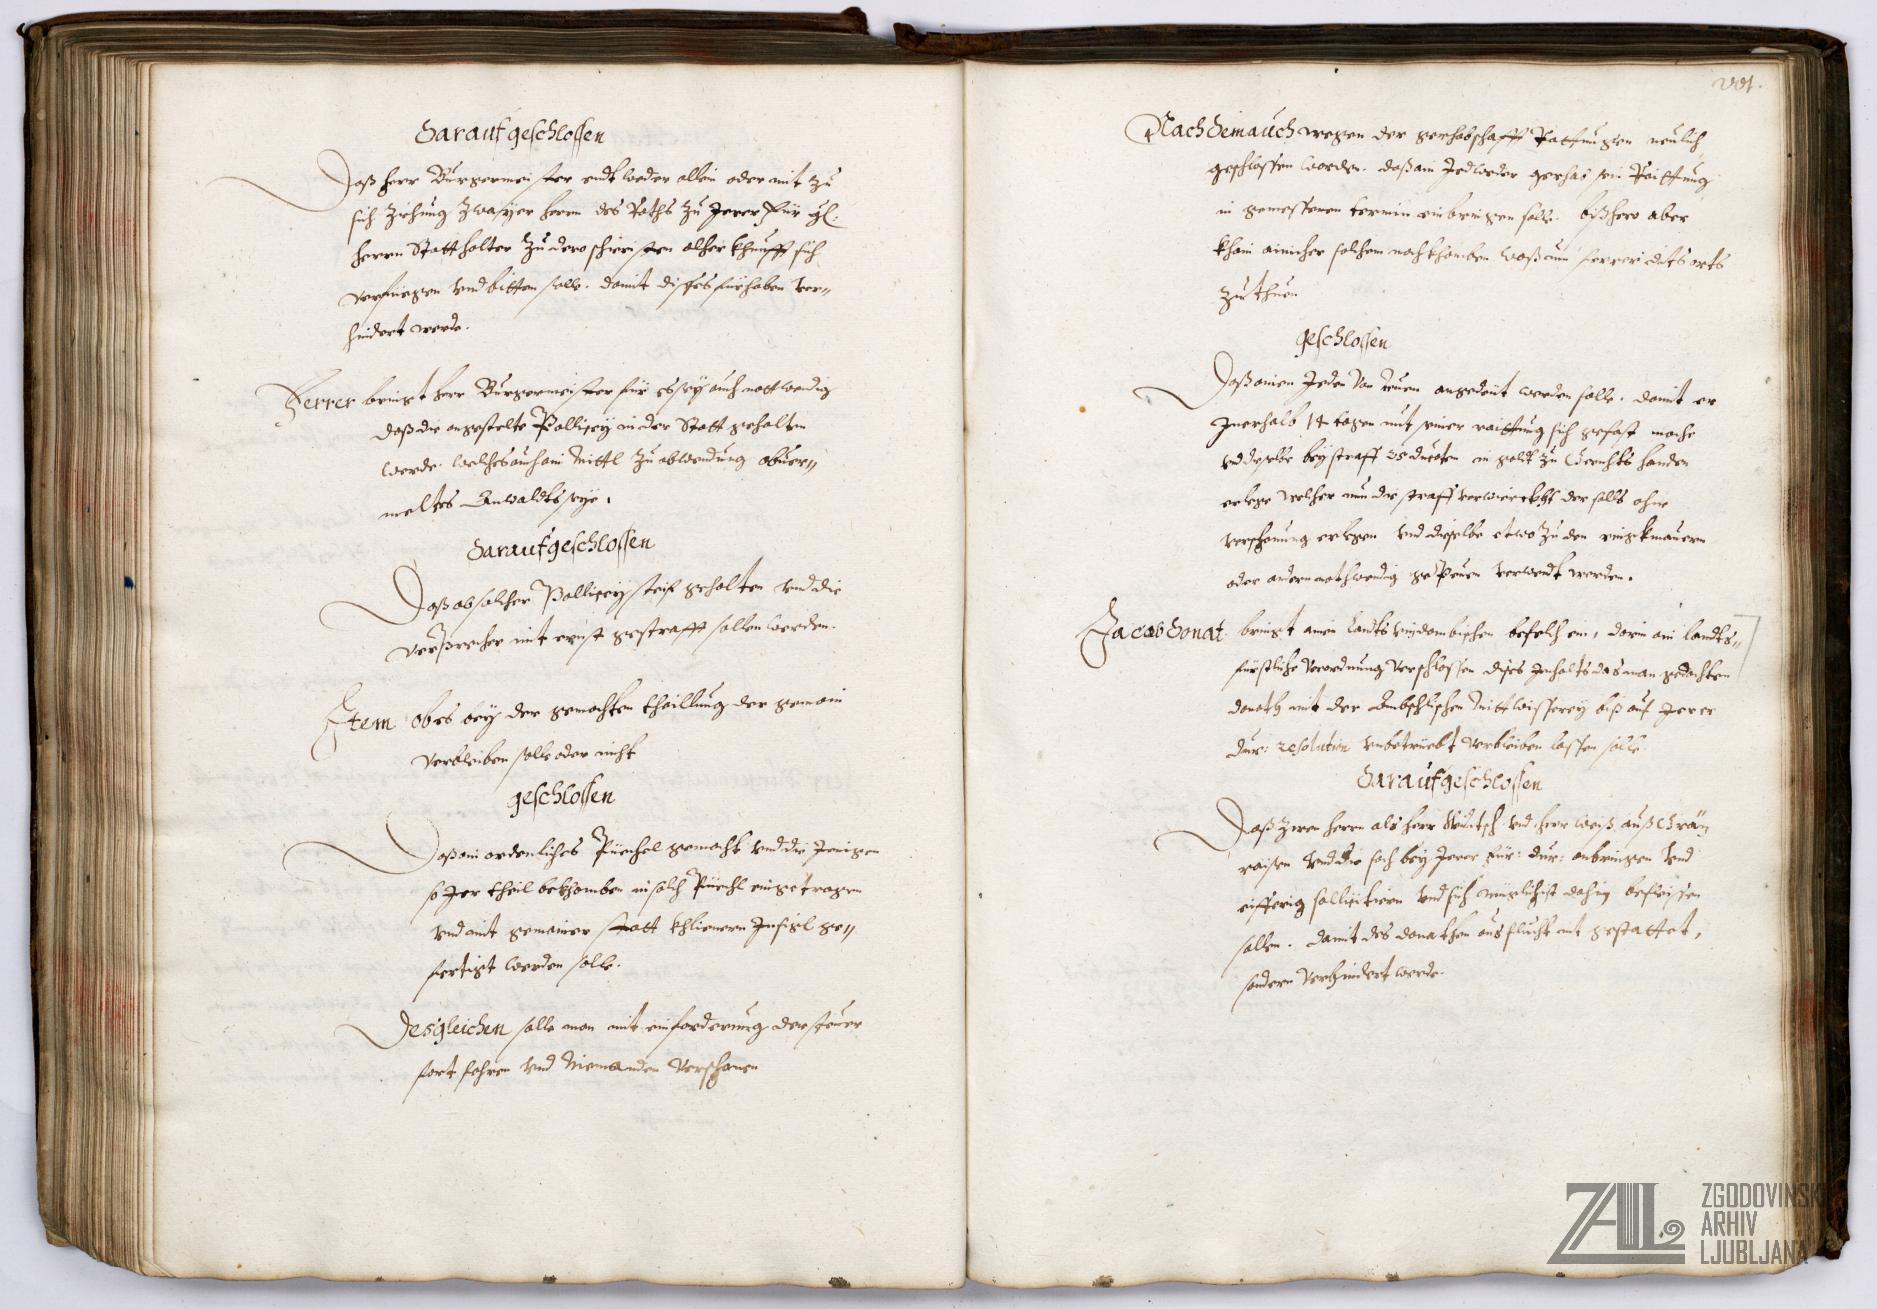 Darauf geschlossen
Daß herr Burgermeister endtweder allein oder mit zu
sich ziehung zwayer herrn des Raths zu Jerer Für: gl:
herrn Statthalter zu dero schieristen alher khunfft sich
verfüegen vnd bitten solle. damit dises fürhaben ver„
hindert werde.
Ferrer bringt herr Burgermeister für es sey auch nottwendig
daß die angestelte Pollicey in der Statt gehalten
werde. welches auch ain Mittl zu abwendung obuer„
meltes Anwaldts seye.
Darauf geschlossen
Daß ob solcher Pollicey steif gehalten vnd die
verprecher mit ernst gestrafft sollen werden.
Item ob es bey der gemachten thaillung der gemain
verbleiben solle oder nicht
geschlossen
Daß ain ordenliches Püechel gemacht vnd die Jenigen
so Jer theil bekhomben in solch Püechl eingetragen
vnd mit gemainer statt khlienern Insigl ge„
fertigt werden solle.
Desgleichen solle man mit einforderung der steuer
fort fahren vnd Niemanden verschonen
Nachdem auch wegen der gerhabschafft Raittungen neulich
geschlossen worden. daß ain Jedweder gerhab sein Raittung
in gemessenen termin einbringen solle. bißhero aber
khain ainicher solchem nachkhomben waß nun ferrer dits orts
zu thuen
geschlossen
Daß ainen Jeden von neuen angedeut werden solle. damit er
Inerhalb 14 tagen mit seiner raittung sich gefast mache
vnd dieselbe bey straff 25 ducaten in goldt zu Gerichts handen
erlege welcher nun die straff verwürckht der solls ohne
verschonung erlegen vnd dieselbe etwo zu den ringkmauern
oder andern nothwendig gepeuen verwendt werden.
Jacob Donat. bringt ainen Landts vizdombischen befelch ein, darin ain landts„
fürstliche verordnung verschlossen dises Inhalts das man gedachten
donath mit der Mitlwisserey biß auf Jerer
dur: resolution vnbetrüebt verbleiben lassen solle.
Darauf geschlossen
Daß zween herrn als herr vnd herr weiß auß Gräz
raisen vnd die sach bey Jerer für: dur: anbringen vnd
eifferig sollicitiern vnd sich müglichist dahin befleissen
sollen. damit des donathen ausflucht nit gestattet,
sondern verhindert werde.
ZAL
ZGODOVINSKI
ARHIV
LJUBLJANA